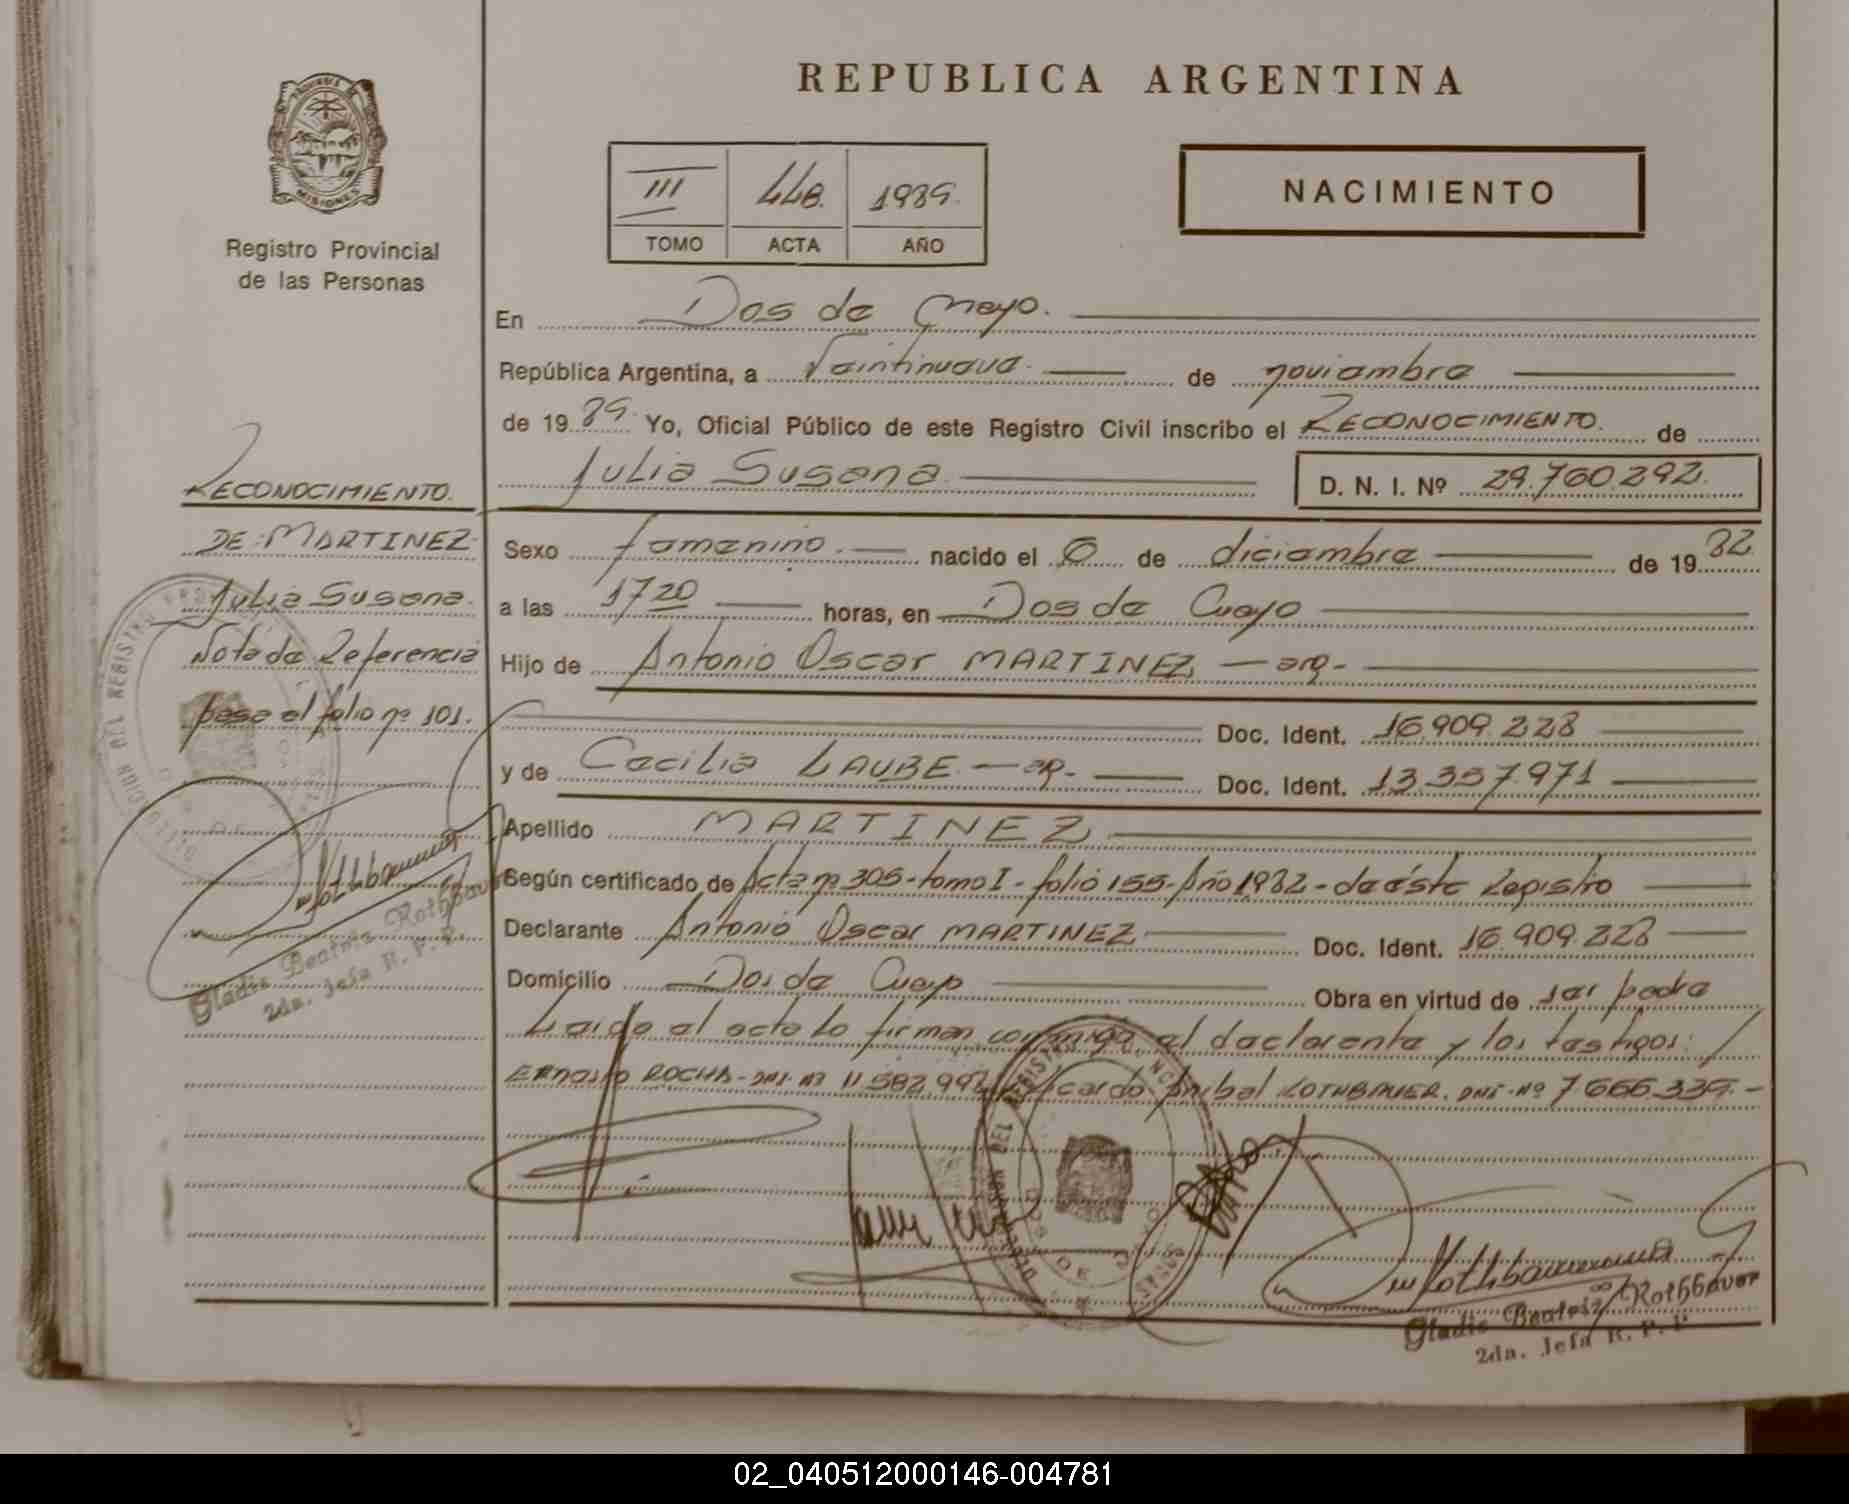 REPUBLICA ARGENTINA
PROVINCIA DE
MISIONES
Registro Provincial
de las Personas
III 448. 1989.
TOMO ACTA AÑO
NACIMIENTO
En Dos de Mayo.
República Argentina, a Veintinueve de noviembre
de 1989. Yo, Oficial Público de este Registro Civil inscribo el RECONOCIMIENTO. de
Julia Susana D. N. I. Nº 29.760.292.
RECONOCIMIENTO.
DE: MARTINEZ
Julia Susana.
Nota de Referencia
pasa al folio nº 101.
Sexo femenino. nacido el 6 de diciembre de 1982
a las 17 20 horas, en Dos de Mayo
Hijo de Antonio Oscar MARTINEZ — arg-
Doc. Ident. 16.909.228
y de Cecilia LAUBE — arg- Doc. Ident. 13.357.971
Apellido MARTINEZ
Según certificado de Acta nº 305-tomo I- folio 155-Año 1982-de éste Registro
Declarante Antonio Oscar MARTINEZ Doc. Ident. 16.909.228
Domicilio Dos de Mayo Obra en virtud de ser padre
Leída el acta la firman conmigo el declarante y los testigos:
Ernesto ROCHA-DNI-Nº 11.582.99 Ricardo Anibal ROTHBAUER. DNI-Nº 7.666.339.-
Gladis Beatriz Rothbauer
2da. Jefa R. P. P.
Gladis Beatriz Rothbauer
2da. Jefa R. P. P
02_040512000146-004781